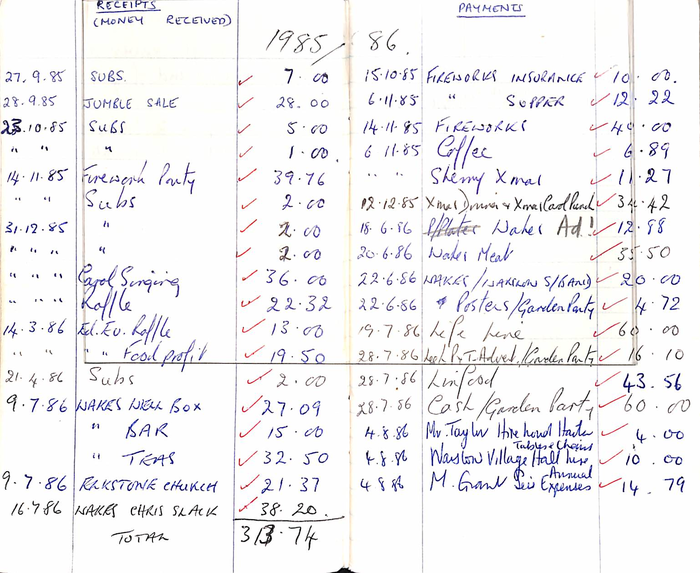 RECEIPTS
(MONEY RECEIVED)
PAYMENTS
1985/86.
27.9.85 SUBS. 7.00
28.9.85 JUMBLE SALE 28.00
23.10.85 SUBS 5.00
" " " 1.00
14.11.85 Firework Party 39.76
" " Subs 2.00
31.12.85 " 2.00
" " " " 2.00
" " " Carol Singing 36.00
" " " Raffle 22.32
14.3.86 Ed. Ev. Raffle 13.00
" " Food profit 19.50
21.4.86 Subs 2.00
9.7.86 WAKES WELL BOX 27.09
" BAR 15.00
" TEAS 32.50
9.7.86 ELKSTONE CHURCH 21.37
16.7.86 WAKES CHRIS SLACK 38.20.
TOTAL 313.74
15.10.85 FIREWORKS INSURANCE 10.00.
6.11.85 " SUPPER 12.22
14.11.85 FIREWORKS 40.00
6 11.85 Coffee 6.89
" " Sherry Xmas 11.27
12.12.85 Xmas Dinner & Xmas Carol Punch 34.42
18.6.86 Wakes Ad! 12.98
20.6.86 Wakes Meat 35.50
22.6.86 WAKES/WARSLOW S/BAND 20.00
22.6.86 " Posters/Garden Party 4.72
19.7.86 Line 60.00
28.7.86 Leek P.&T. Advert./Garden Party 16.10
28.7.86 Linfood 43.56
28.7.86 Cash/Garden Party 60.00
4.8.86 Mr. Taylor Hire 4.00
Tables & Chairs
4.8.86 Warslow Village Hall hire 10.00
Annual
4 8 86 M. Grant Sec Expenses 14.79